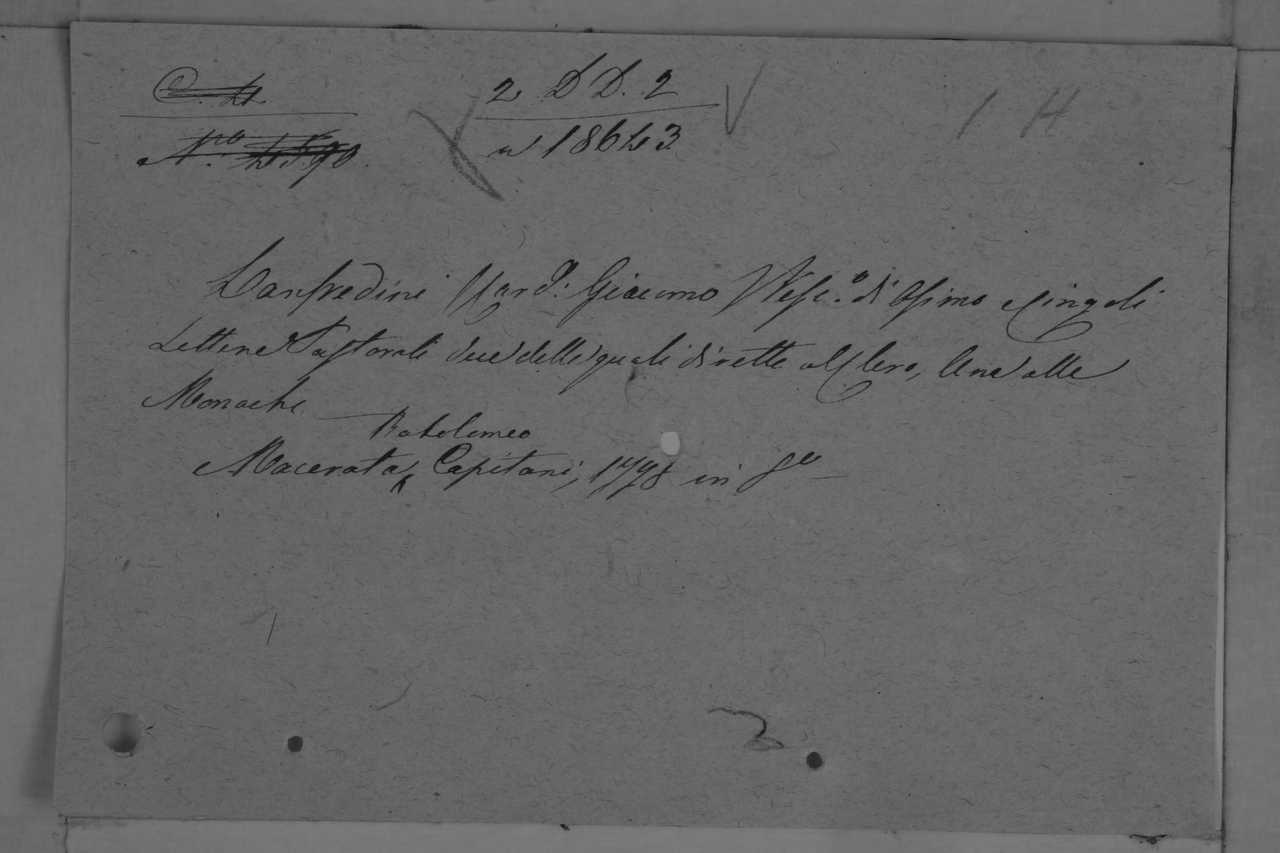 C. 4 2 DD. 2 1 H
Nro 4590 n 18643
Lanfredini Card: Giacomo Vesc.o di Osimo e Cingoli
Lettere Pastorali due delle quali dirette al Clero, Una alle
Monache
Bartolomeo
Macerata, Capitani, 1778 in